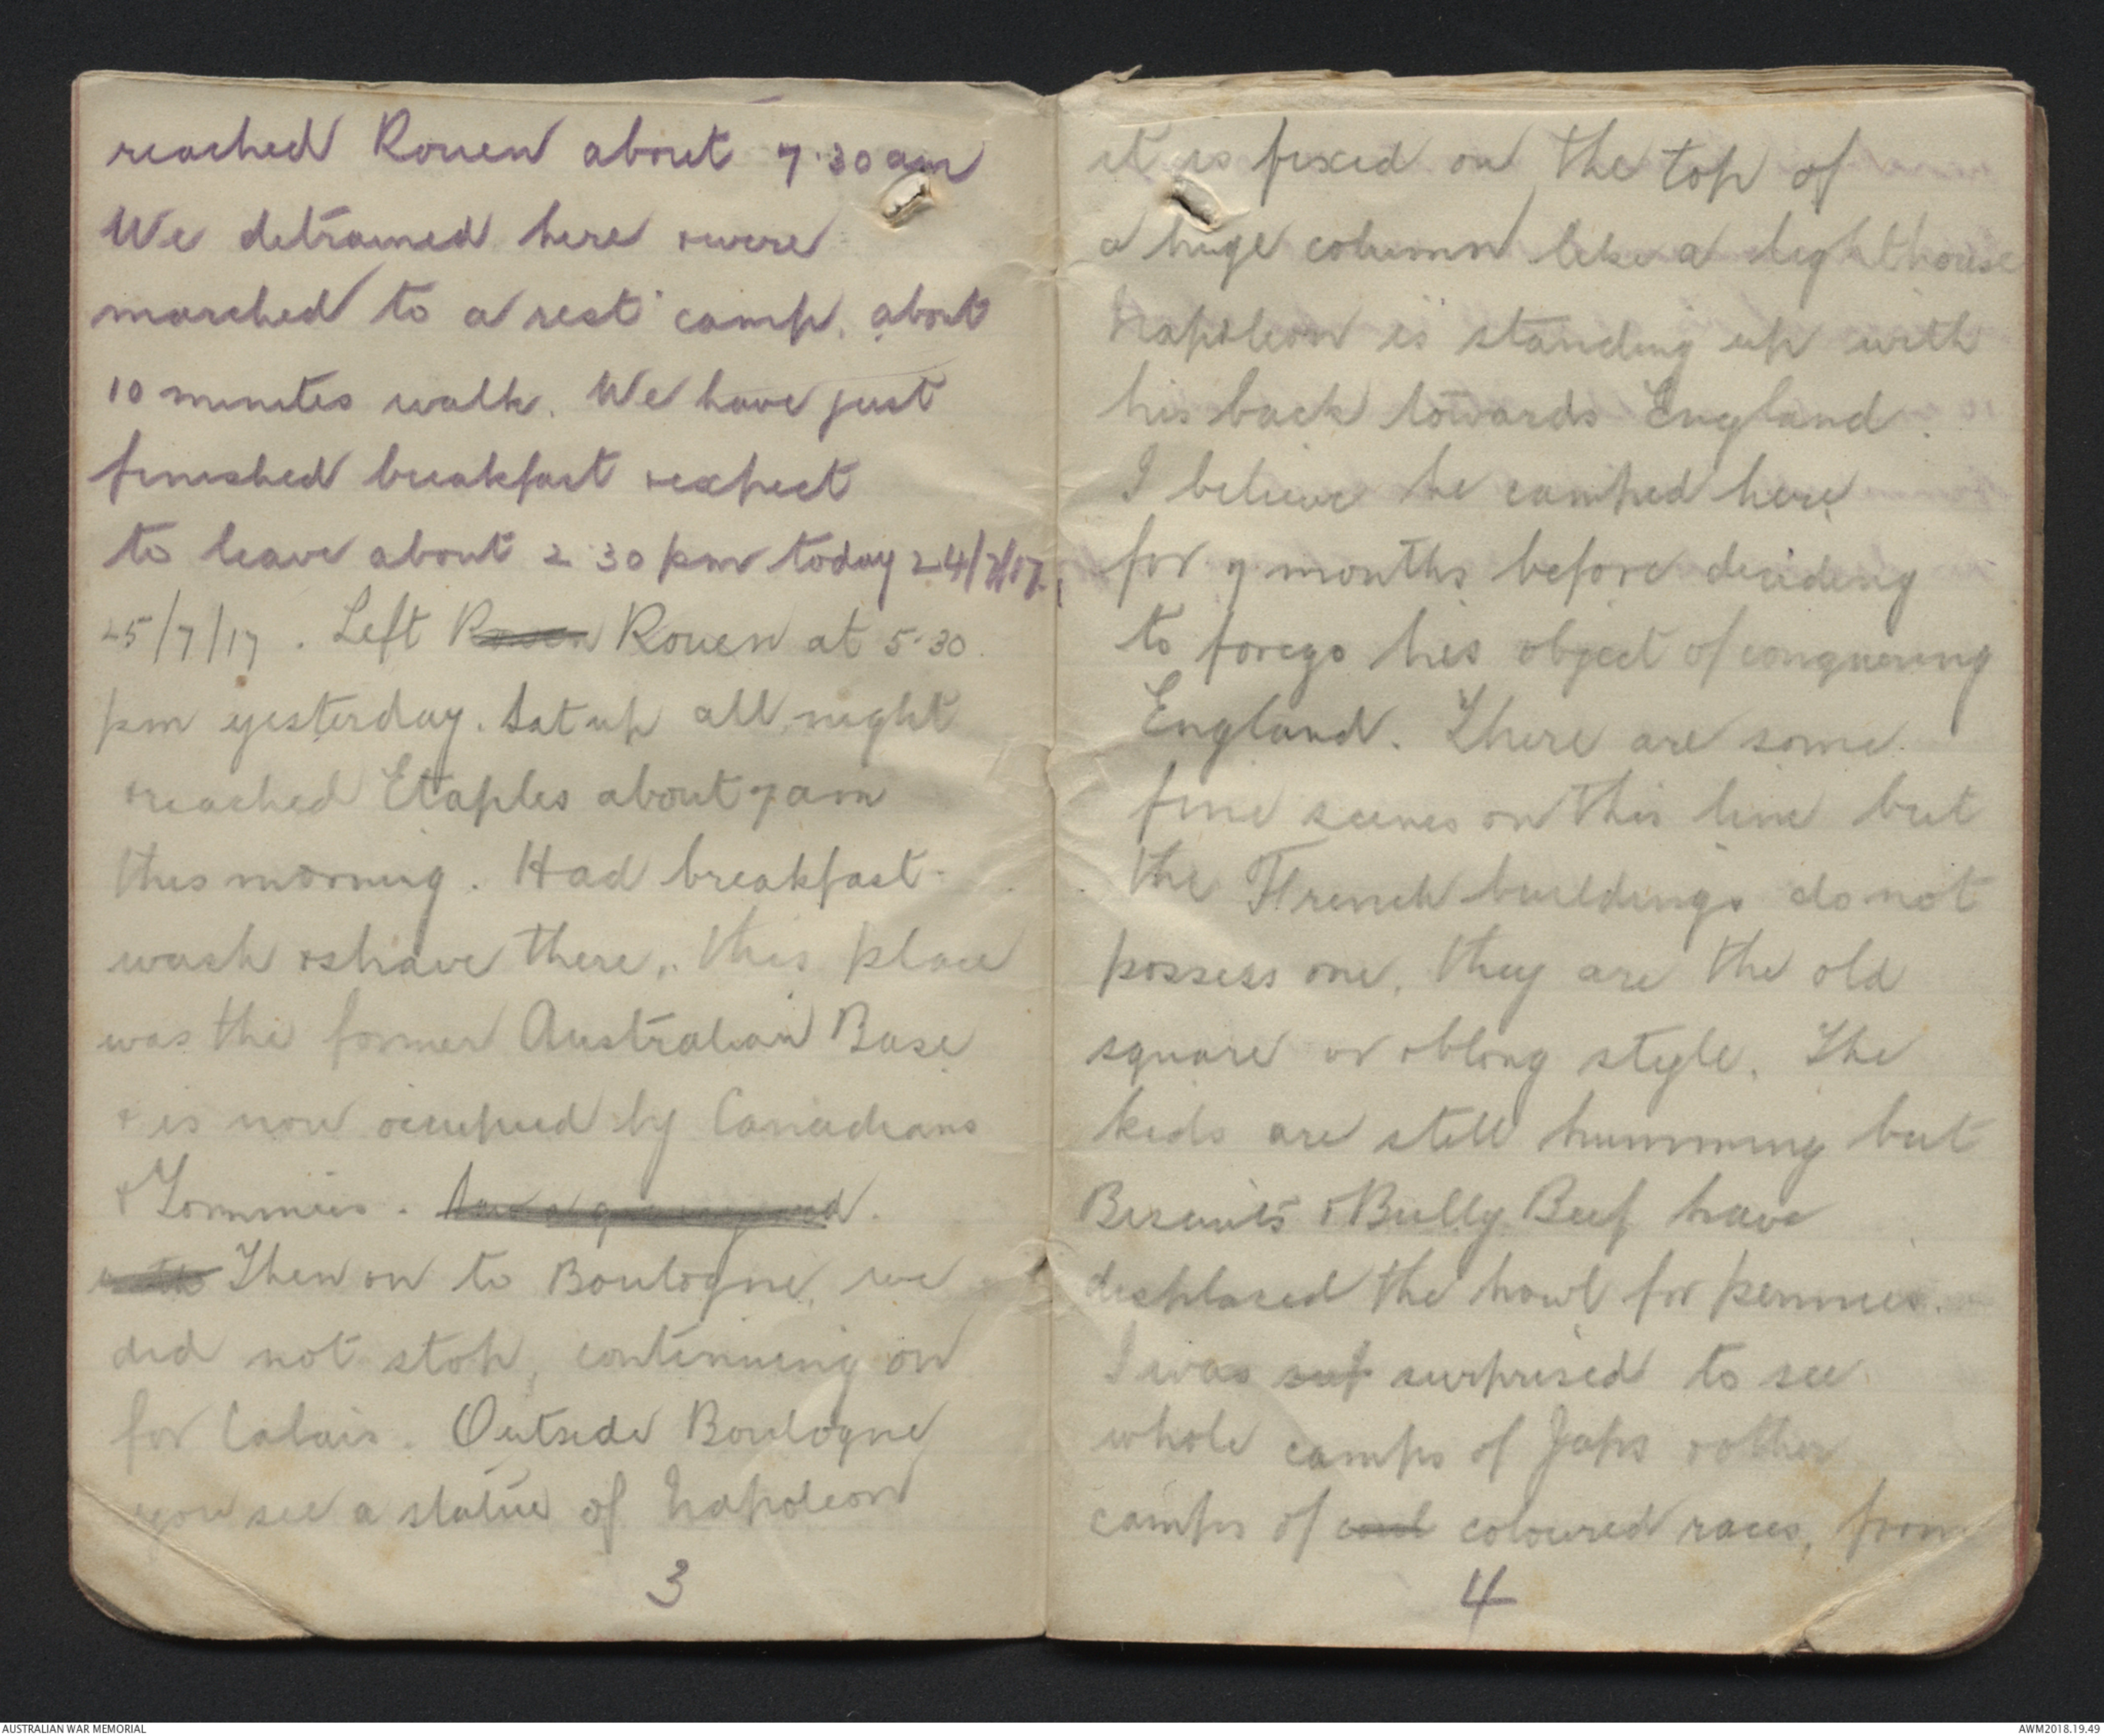 reached Rouen about 7.30 am
We detrained here & were
marched to a rest camp, about
10 minutes walk. We have just
finished breakfast & expect
to leave about 2.30 pm today 24/7/17.
25/7/17. Left Rouen Rouen at 5.30
pm yesterday. Sat up all night
& reached Etaples about 7 am
this morning. Had breakfast
wash & shave there, this place
was the former Australian Base
& is now occupied by Canadians
& Tommies.
Then on to Boulogne, we
did not stop, continuing on
for Calais. Outside Boulogne
you see a statue of Napoleon
3
it is fixed on the top of
a huge column like a lighthouse
Napoleon is standing up with
his back towards England.
I believe he camped here
for 9 months before deciding
to forego his object of conquering
England. There are some
fine scenes on this line but
the French buildings do not
possess one, they are the old
square or oblong style. The
kids are still humming but
Biscuits & Bully Beef have
displaced the howl for pennies.
I was sup surprised to see
whole camps of Japs & other
camps of coul coloured races, from
4
AUSTRALIAN WAR MEMORIAL
AWM2018.19.49